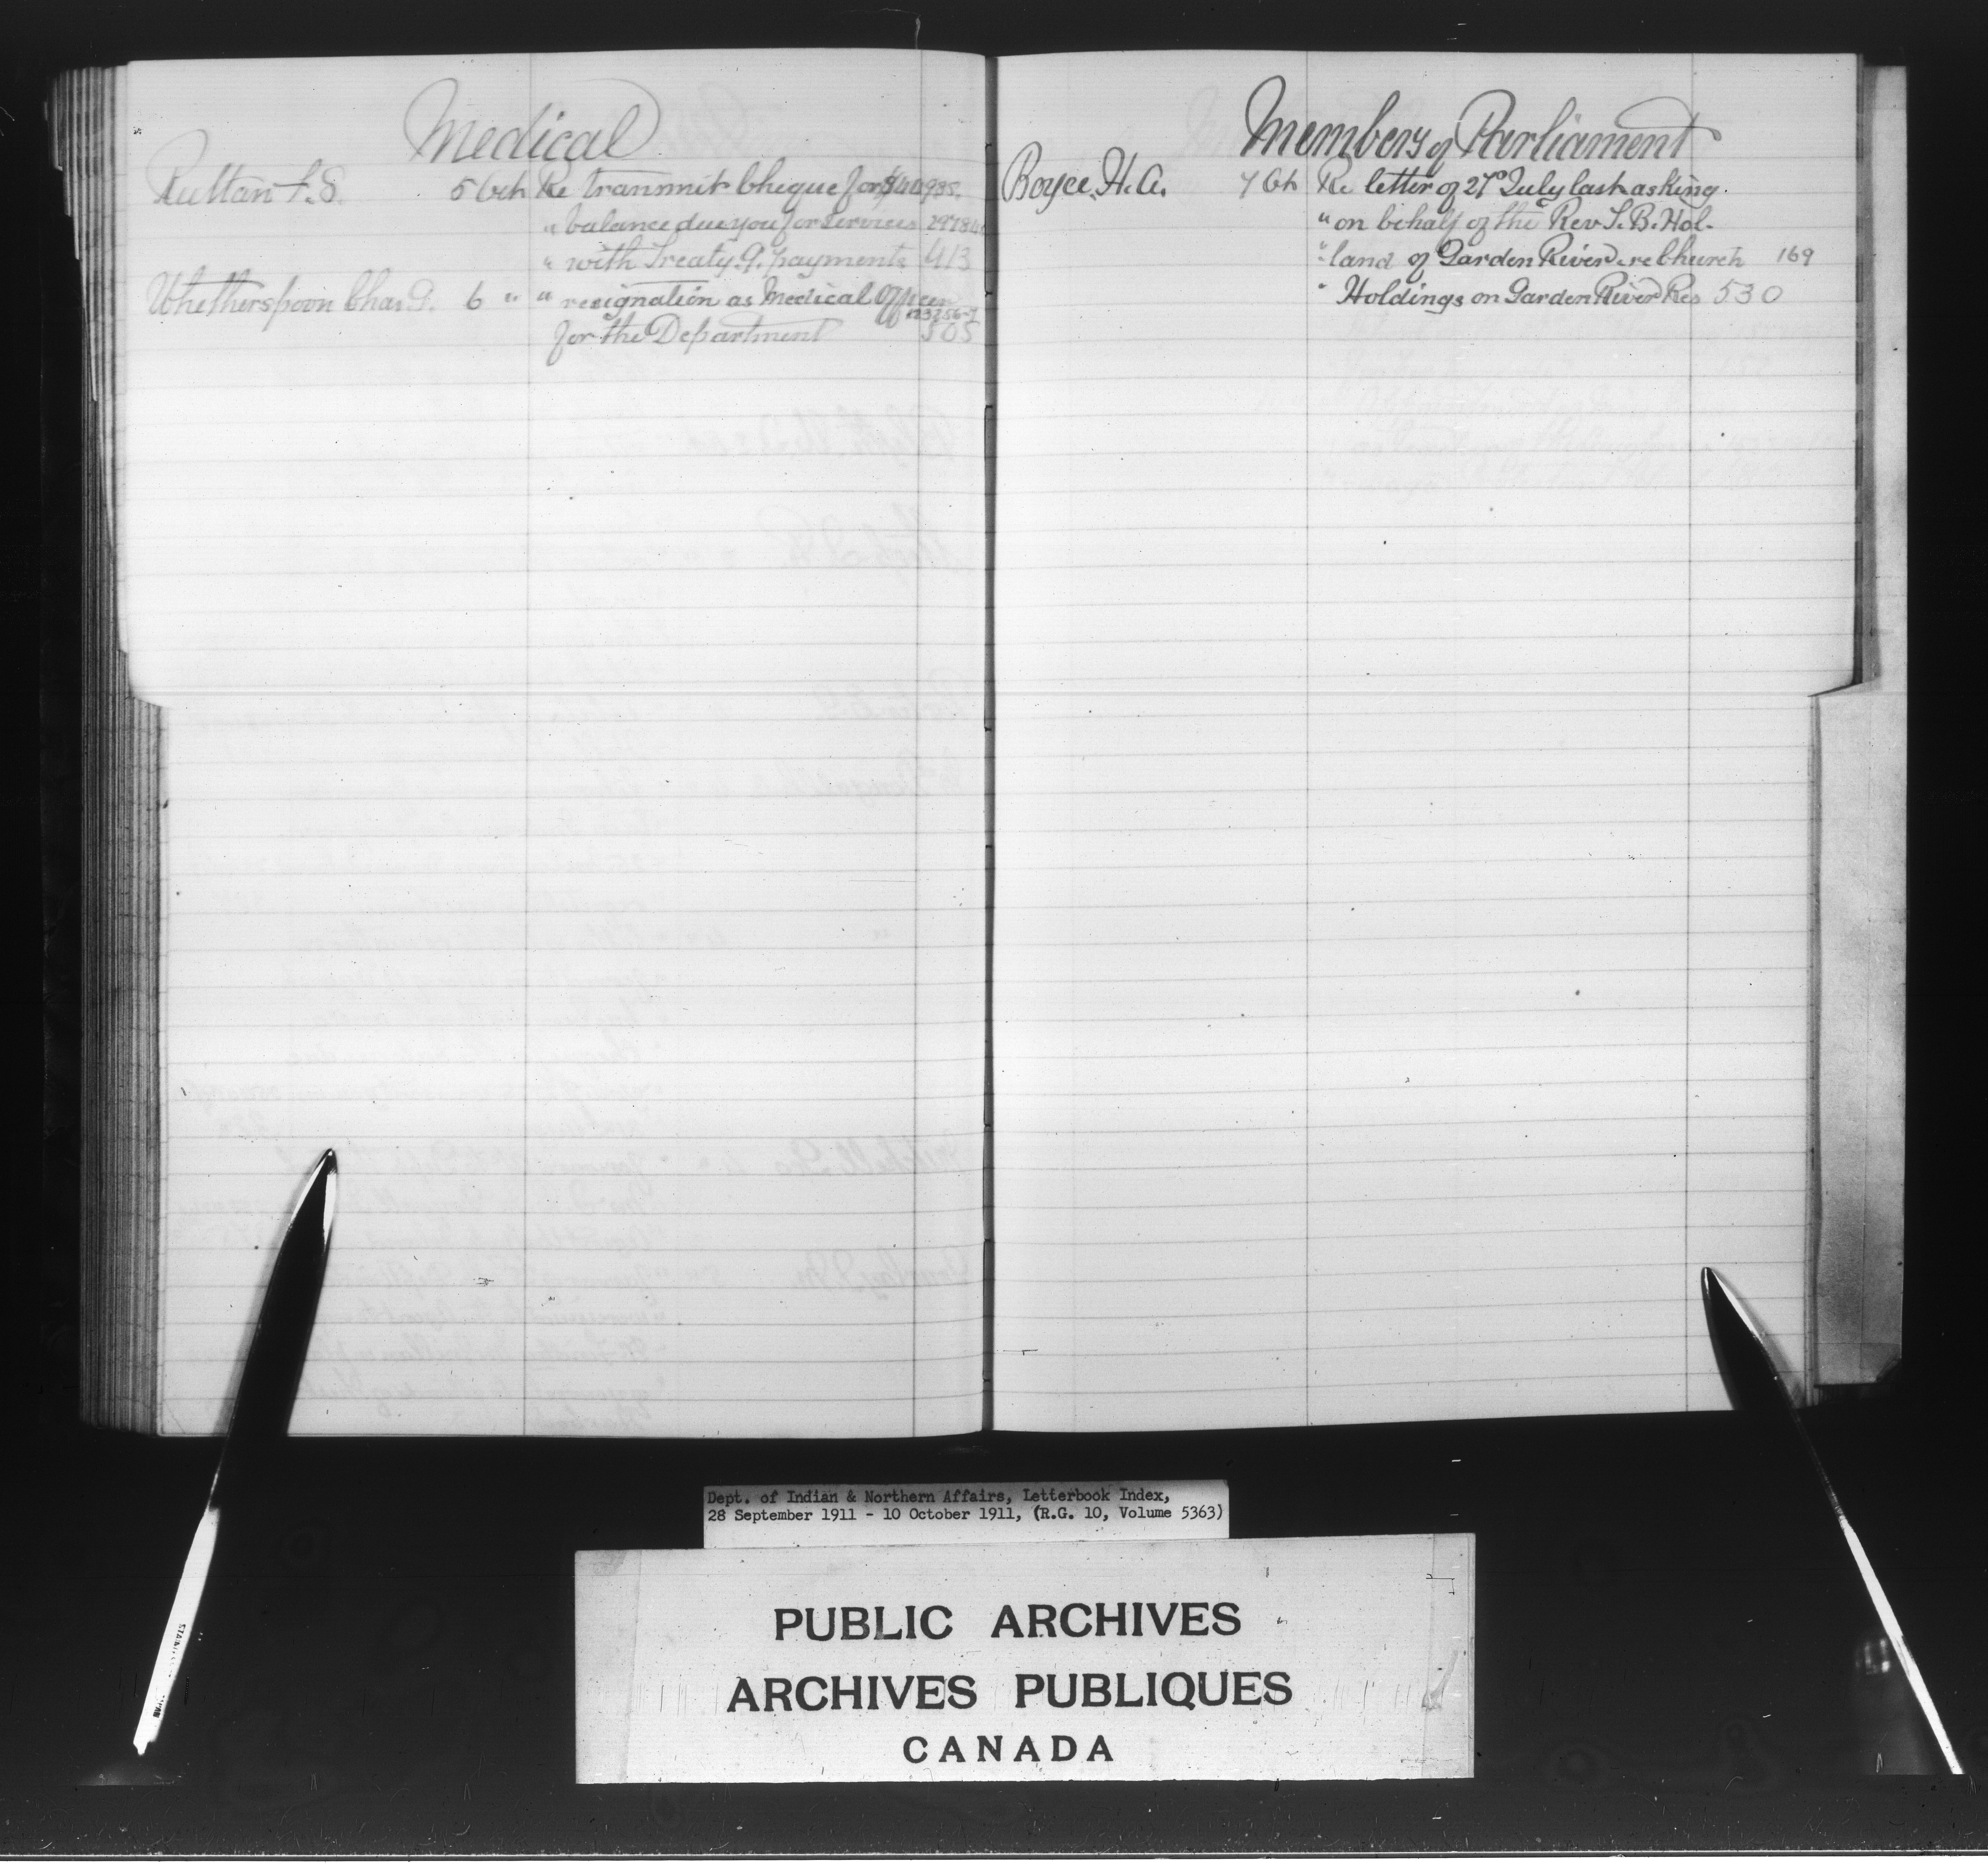 Medical
Ruttan F.S. 5 Oct Re transmit cheque for $
" balance due you for services
" with Treaty 9. payments 413
Whetherspoon Chas. G. 6 " " resignation as Medical Officer
for the Department 505
Members of Parliament
Boyce, H.A. 7 Oct Re letter of 27o July last asking.
" on behalf of the Rev S.B. Hol-
" land of Garden River re Church 169
" Holdings on Garden River Res 530
Dept. of Indian & Northern Affairs, Letterbook Index,
28 September 1911 - 10 October 1911, (R.G. 10, Volume 5363)
PUBLIC ARCHIVES
ARCHIVES PUBLIQUES
CANADA